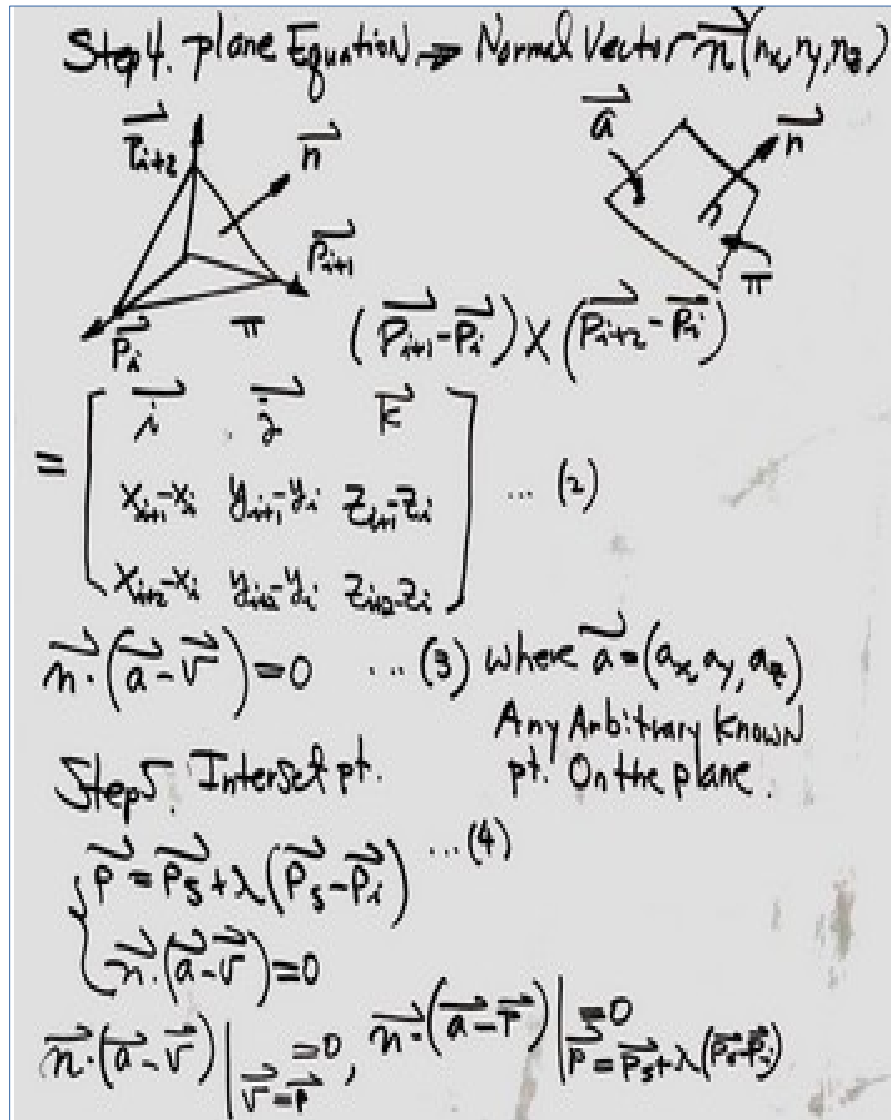 Step 4. plane Equation → Normal Vector n⃗(nx, ny, nz)
P⃗i+2
n⃗
P⃗i+1
P⃗i
π
a⃗
n⃗
π
(P⃗i+1 - P⃗i) × (P⃗i+2 - P⃗i)
= [ i⃗ j⃗ k⃗
xi+1-xi yi+1-yi zi+1-zi ... (2)
xi+2-xi yi+2-yi zi+2-zi ]
n⃗·(a⃗-v⃗)=0 ... (3) where a⃗=(ax, ay, az)
Any Arbitrary Known
pt. On the plane.
Step 5. Interset pt.
{ P⃗ = P⃗s+λ(P⃗s-P⃗i) ... (4)
n⃗·(a⃗-v⃗)=0
n⃗·(a⃗-v⃗)|v⃗=P⃗ =0, n⃗·(a⃗-P⃗)|P⃗=P⃗s+λ(P⃗s-P⃗i) =0